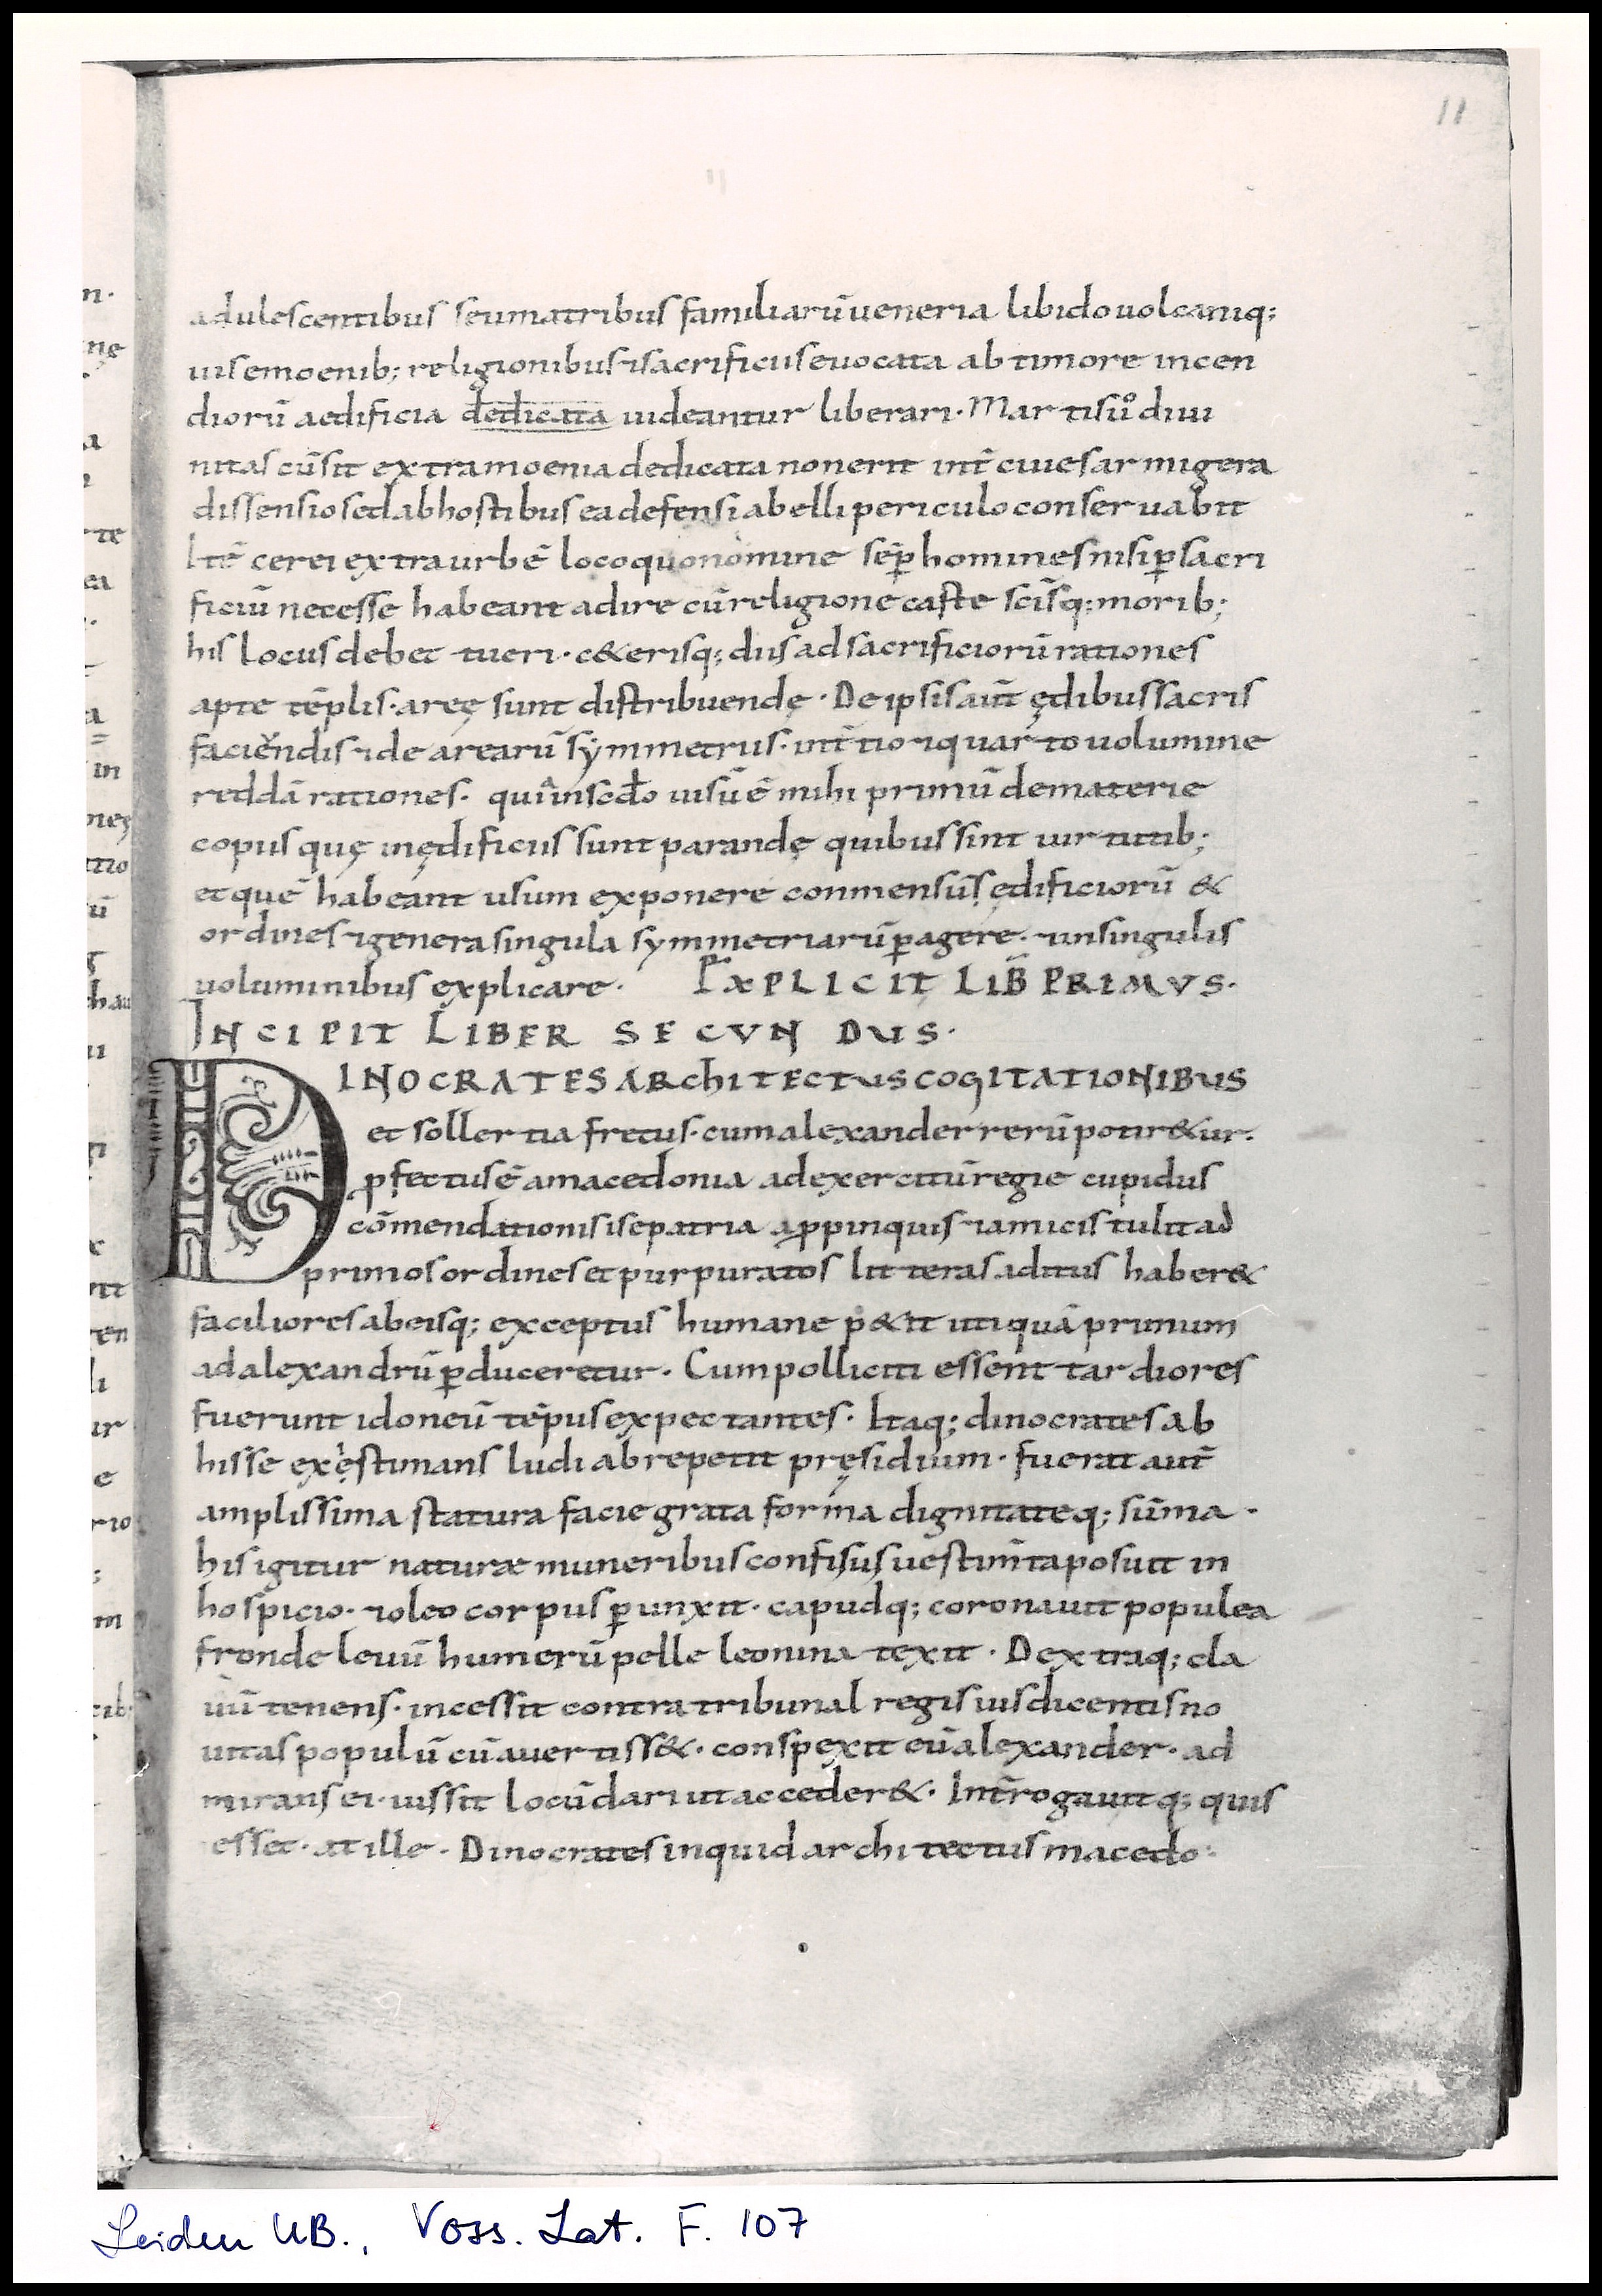 11
adulescentibus seu matribus familiarū ueneria libido uolcaniq;
uis e moenib; religionibus ⁊ sacrificiis euocata ab timore incen
diorū aedificia dedicata uideantur liberari. Martis ū diui
nitas cū sit extra moenia dedicata non erit int̄ ciues armigera
dissensio sed ab hostibus ea defensi a belli periculo conseruabit
Itē cerei extra urbē loco quo nomine sēp homines nisi p̱ sacri
ficiū necesse habeant adire cū religione caste sc̄isq; morib;
his locus debet tueri. c&erisq; diis ad sacrificiorū rationes
apte tēplis. areę sunt distribuendę. De ipsis aut̄ ędibus sacris
faciendis ⁊ de arearū symmetriis. in t̄tio ⁊ quarto uolumine
reddā rationes. quia in sc̄do uisū ē mihi primū de materie
copus quę in ędificiis sunt parandę quibus sint uirtutib;
et quē habeant usum exponere conmensūs ędificiorū &
ordines ⁊ genera singula symmetriarū p̱agere. ⁊ in singulis
uoluminibus explicare. EXPLICIT LIB̄ PRIMVS.
INCIPIT LIBER SECVNDUS.
DINOCRATES ARchITECTUS COGITATIONIBUS
et sollertia fretus. cum alexander rerū potir&ur.
ꝓfectus ē a macedonia ad exercitū regie cupidus
cōmendationis is e patria a ꝓpinquis ⁊ amicis tulit ad
primos ordines et purpuratos litteras aditus haber&
faciliores ab eisq; exceptus humane p&it uti quā primum
ad alexandrū p̱duceretur. Cum polliciti essent tardiores
fuerunt idoneū tēpus expectantes. Itaq; dinocrates ab
his se exęstimans ludi ab re petit pręsidium. fuerat aut̄
amplissima statura facie grata forma dignitateq; sūma.
his igitur naturæ muneribus confisus uestim̄ta posuit in
hospicio. ⁊ oleo corpus p̱unxit. capudq; coronauit populea
fronde leuū humerū pelle leonina texit. Dextraq; cla
uū tenens. incessit contra tribunal regis ius dicentis no
uitas populū cū auertiss&. conspexit eū alexander. ad
mirans ei. iussit locū dari ut acceder&. Int̄rogauitq; quis
esset. at ille. Dinocrates inquid architectus macedo.
Leiden UB., Voss. Lat. F. 107